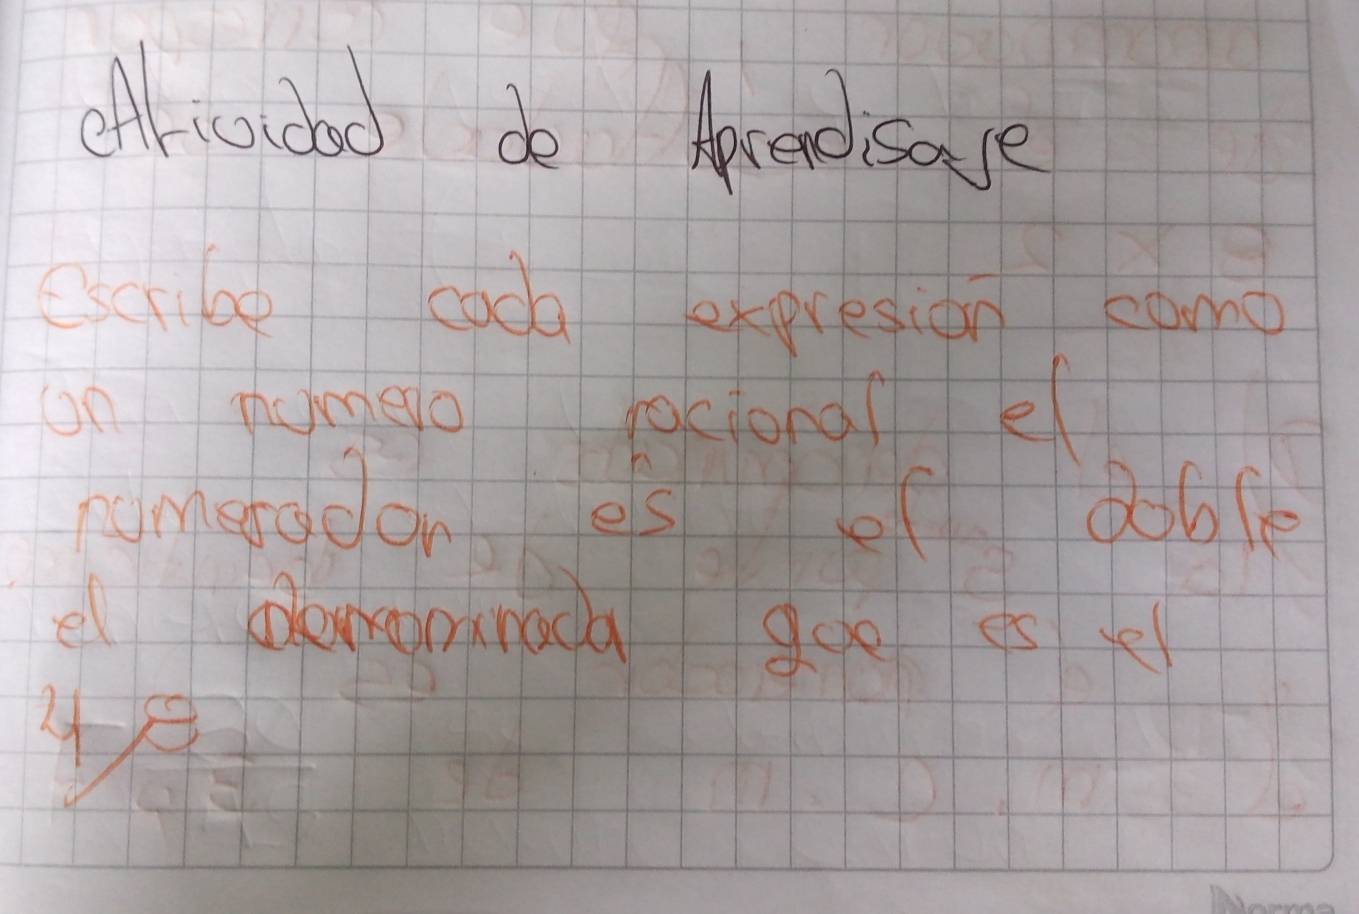 Atividad de Aprendisaje
Escribe cada expresión como
un numero racional el
numerador es el doble
el denominada que es el
4
Norma